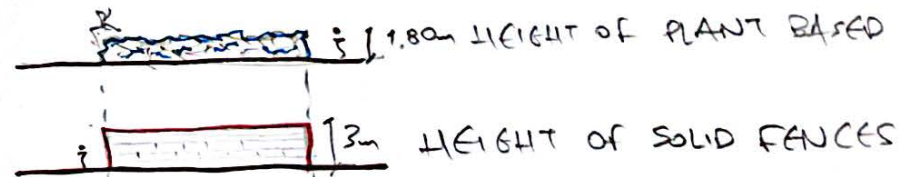 1.80m HEIGHT OF PLANT BASED
3m HEIGHT OF SOLID FENCES